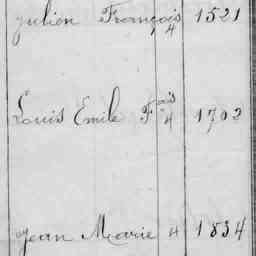 Julien François 4 1521
Louis Emile Fois 4 1702
Jean Marie 4 1834